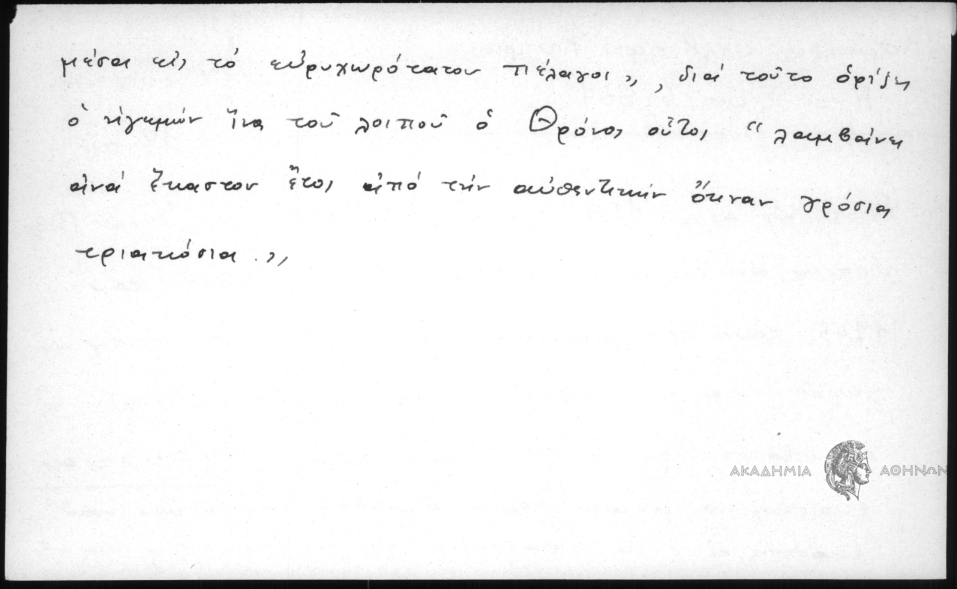 μέσα εἰς τό εὐρυχωρότατον πέλαγος,, , διά τοῦτο ὁρίζει
ὁ ἡγεμών ἵνα τοῦ λοιποῦ ὁ Θρόνος οὗτος "λαμβάνει
ἀνά ἕκαστον ἔτος ἀπό τήν αὐθεντικήν ὄκναν γρόσια
τριακόσια.,,
ΑΚΑΔΗΜΙΑ ΑΘΗΝΩΝ